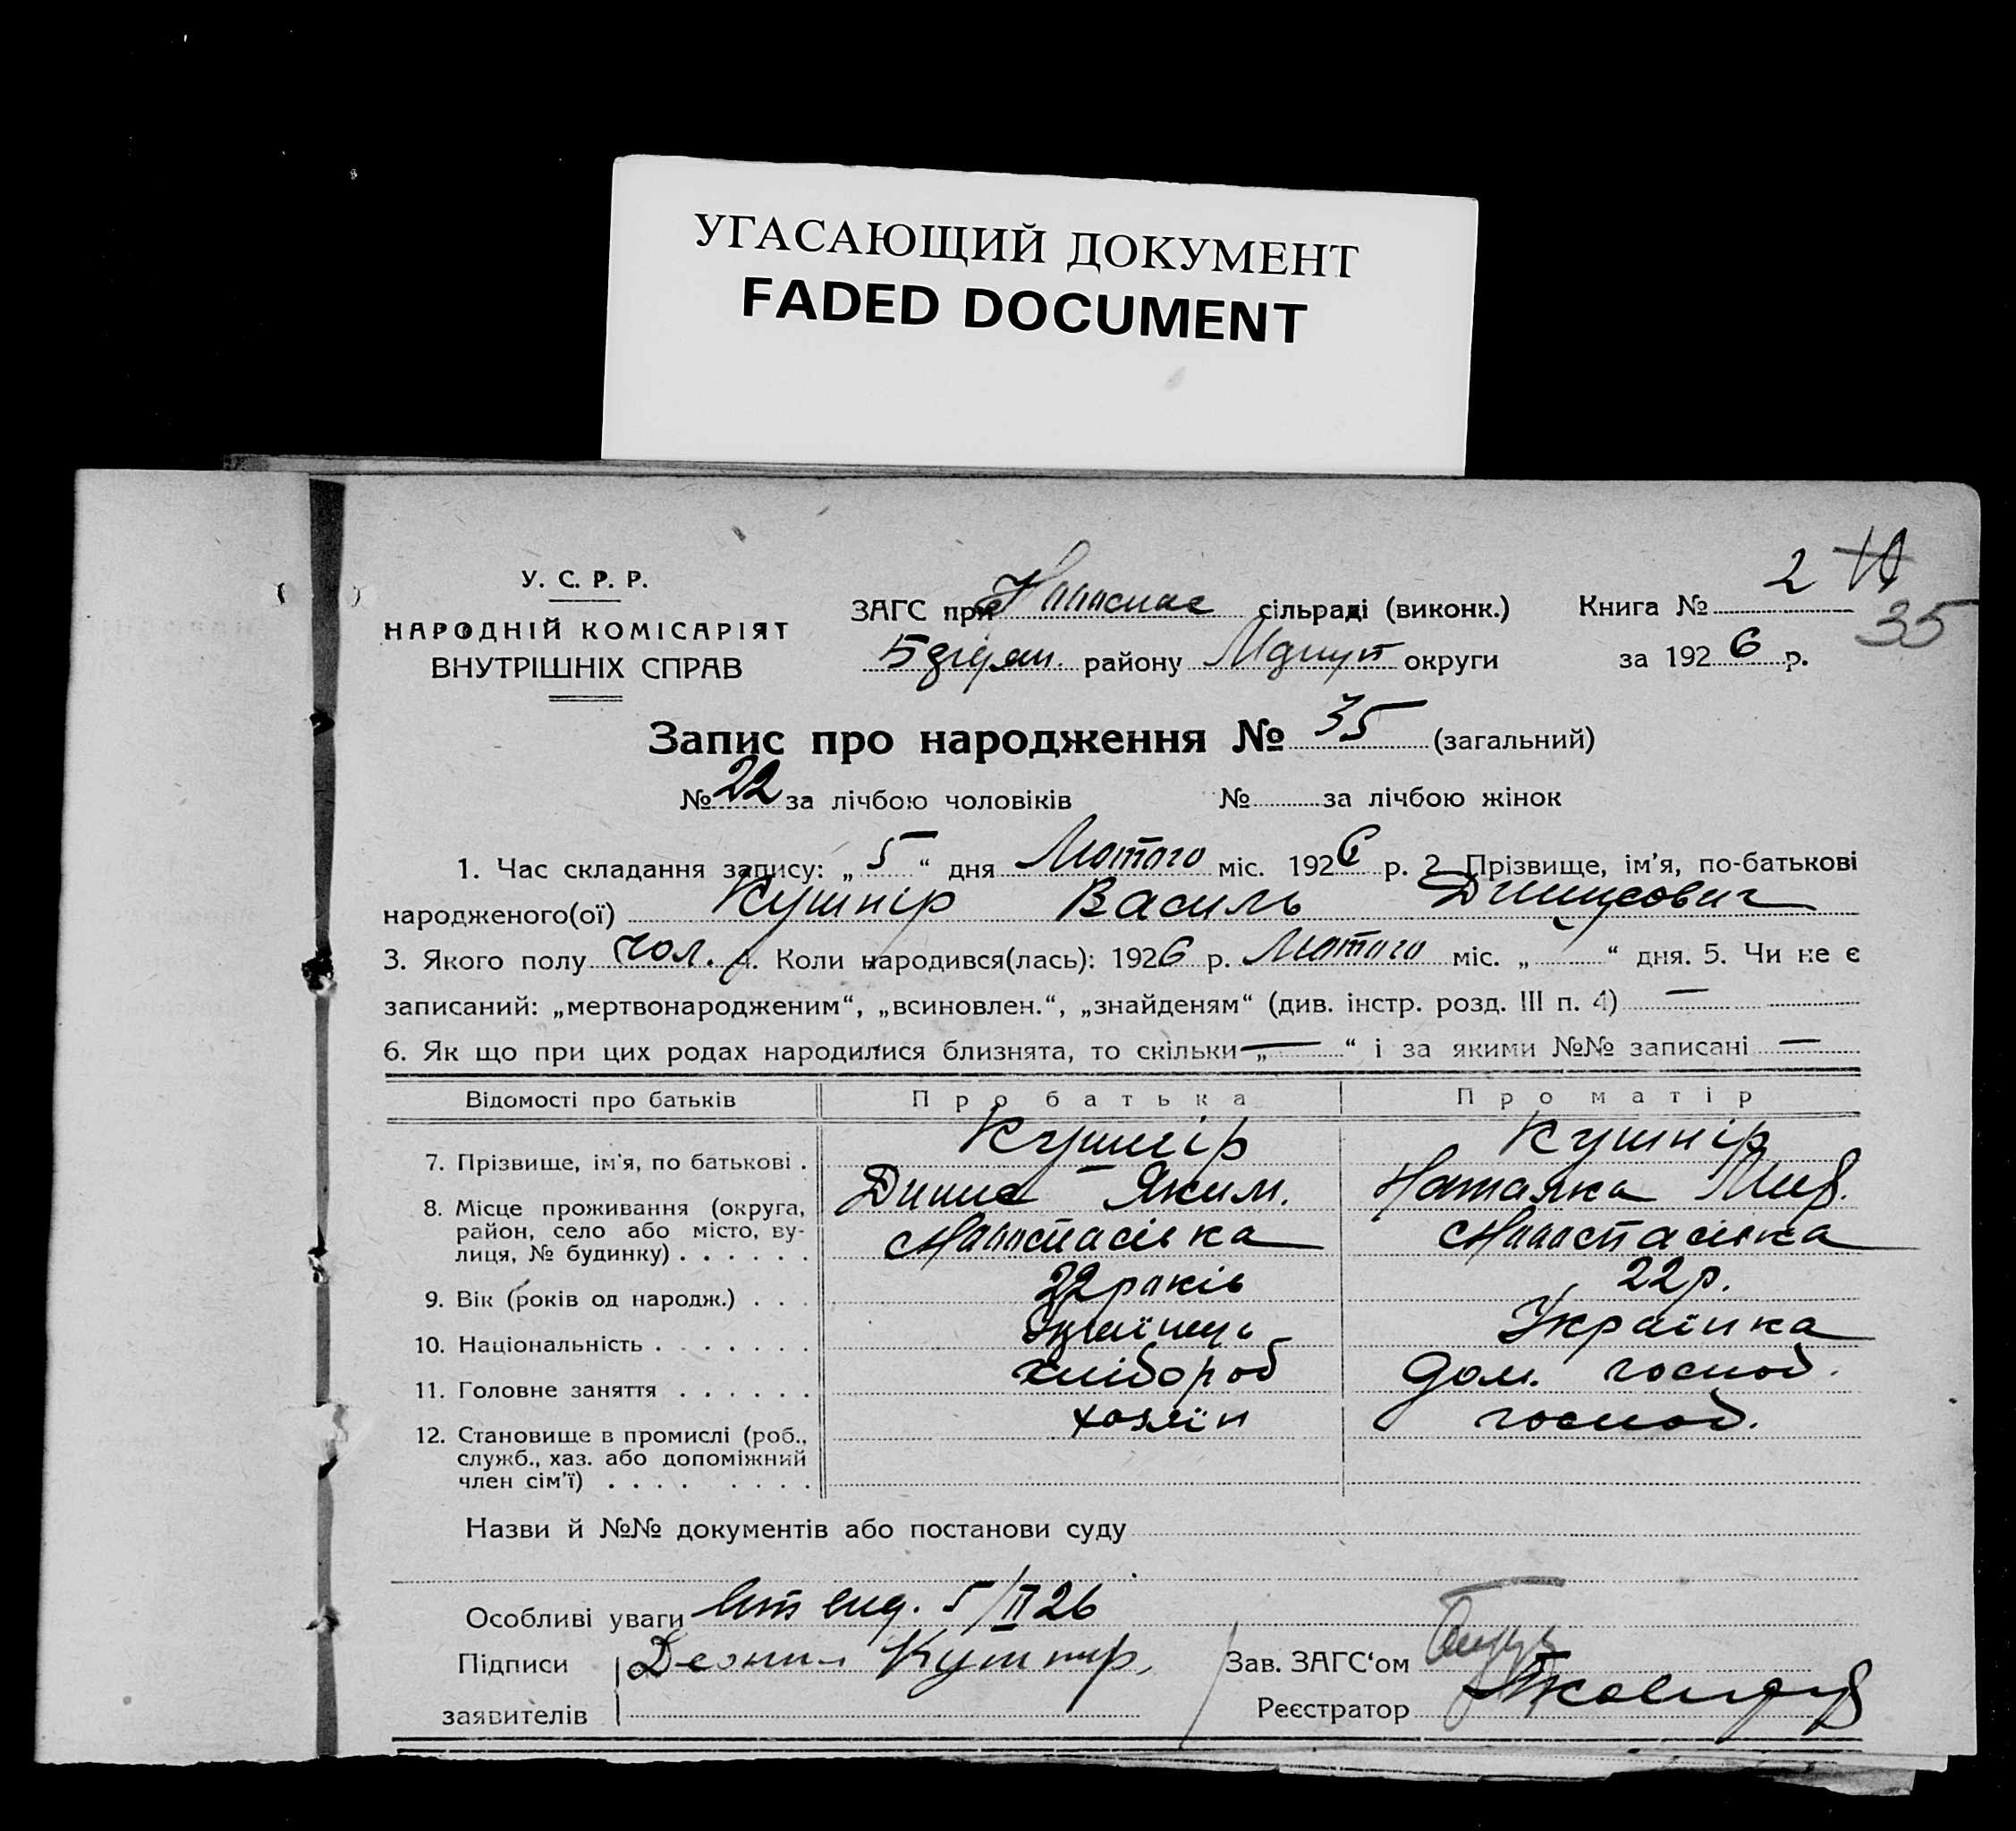 УГАСАЮЩИЙ ДОКУМЕНТ
FADED DOCUMENT
У. С. Р. Р.
НАРОДНІЙ КОМІСАРІЯТ
ВНУТРІШНІХ СПРАВ
ЗАГС при сільраді (виконк.)
району округи
Книга № 2
35
за 1926 р.
Запис про народження № 35 (загальний)
№ 22 за лічбою чоловіків № за лічбою жінок
1. Час складання запису: „ 5 “ дня Лютого міс. 1926 р. 2. Прізвище, ім’я, по-батькові
народженого(ої) Кушнір Василь
3. Якого полу чол. 4. Коли народився(лась): 1926 р. Лютого міс. „ “ дня. 5. Чи не є
записаний: „мертвонародженим“, „всиновлен.“, „знайденям“ (див. інстр. розд. III п. 4) —
6. Як що при цих родах народилися близнята, то скільки „—“ і за якими №№ записані —
Відомості про батьків Про батька Про матір
7. Прізвище, ім’я, по батькові . Кушнір Кушнір
Яким. Наталка
8. Місце проживання (округа,
район, село або місто, ву-
лиця, № будинку) . . . . . .
9. Вік (років од народж.) . . . 22 років 22 р.
10. Національність . . . . . . . Українець Українка
11. Головне заняття . . . . . . хлібороб Дом. господ.
12. Становище в промислі (роб., хазяїн господ.
служб., хаз. або допоміжний
член сім’ї) . . . . . . . .
Назви й №№ документів або постанови суду
Особливі уваги 5/II 26
Підписи Кушнир
заявителів
Зав. ЗАГС‘ом
Реєстратор